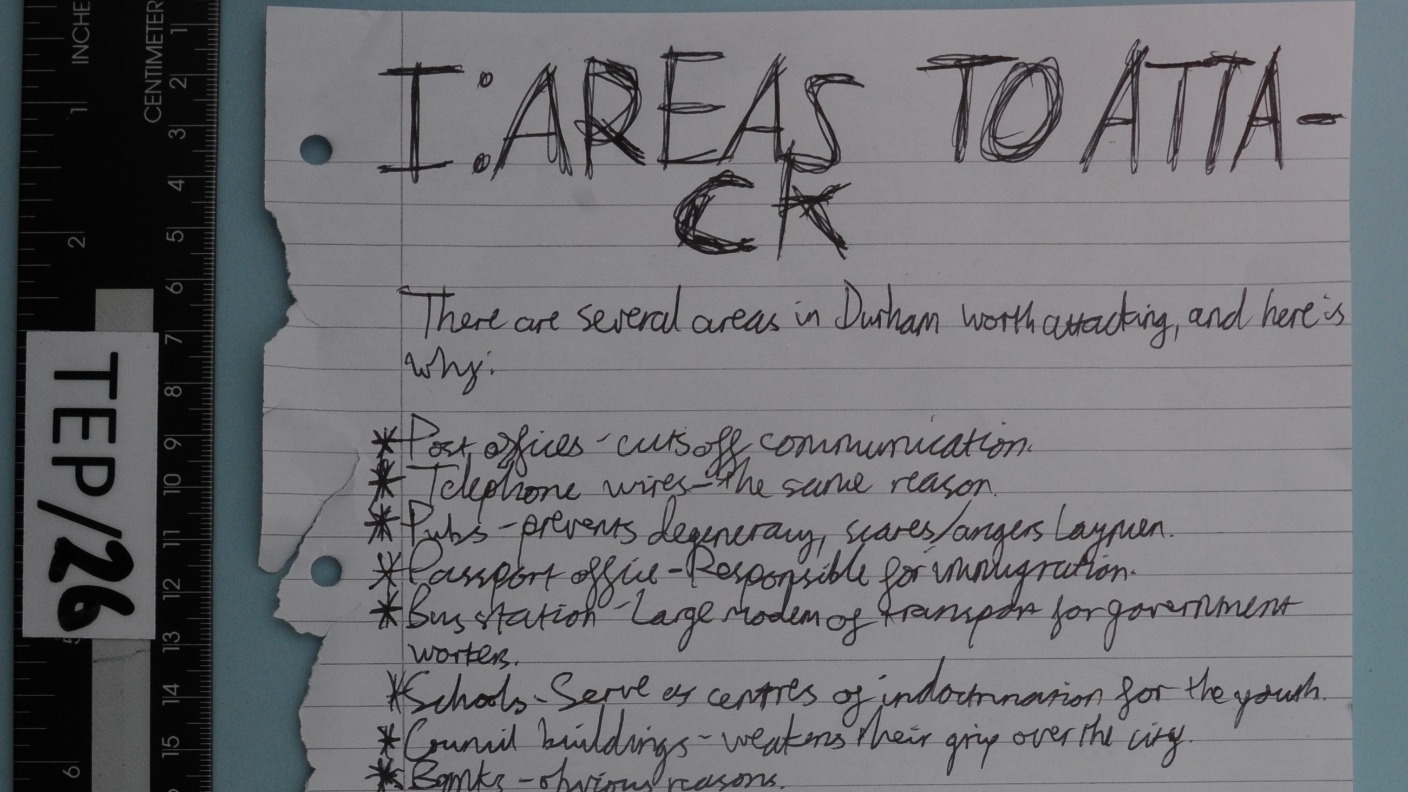 INCHE
CENTIMETER
TEP/26
I: AREAS TO ATTA-
CK
There are several areas in Durham worth attacking, and here is
why:
* Post offices - cuts off communication.
* Telephone wires - the same reason.
* Pubs - prevents degeneracy, scares/angers Laymen.
* Passport office - Responsible for immigration.
* Bus station - Large modem of transport for government
workers.
* Schools - Serve as centres of indoctrination for the youth.
* Council buildings - weakens their grip over the city.
* Banks - obvious reasons.
1
2
3
4
5
6
7
8
9
10
11
12
13
14
15
1
2
5
6